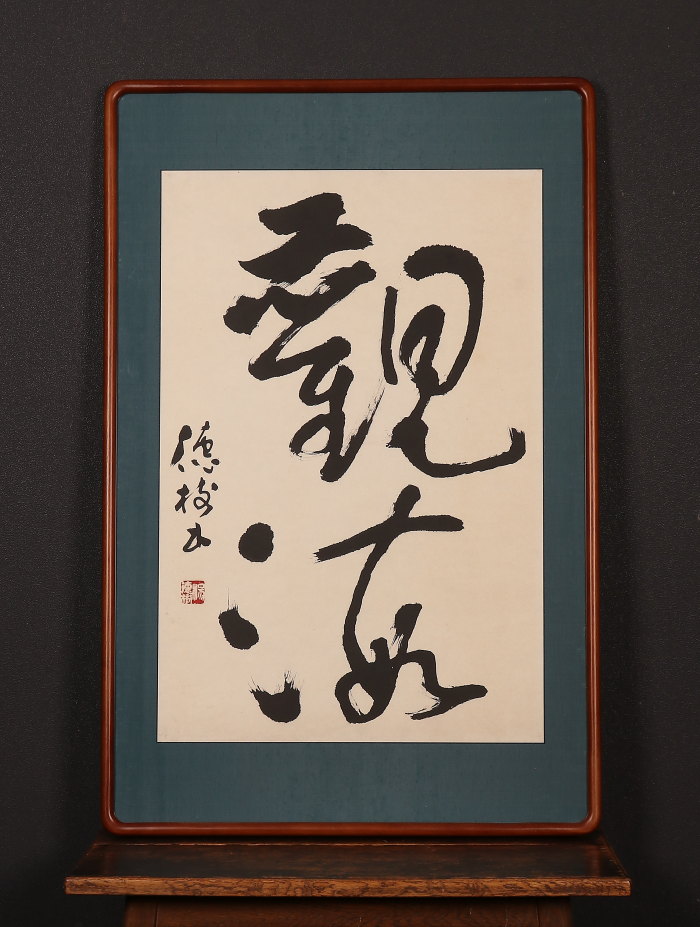 觀海
德樹書